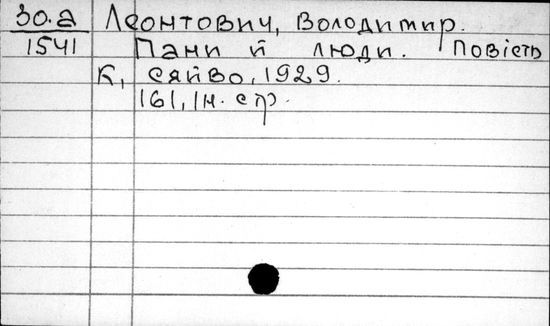 30.а Леонтович, Володимир.
1541 Пани й люди. Повість
К, сяйво, 1929.
161, Iн. стр.